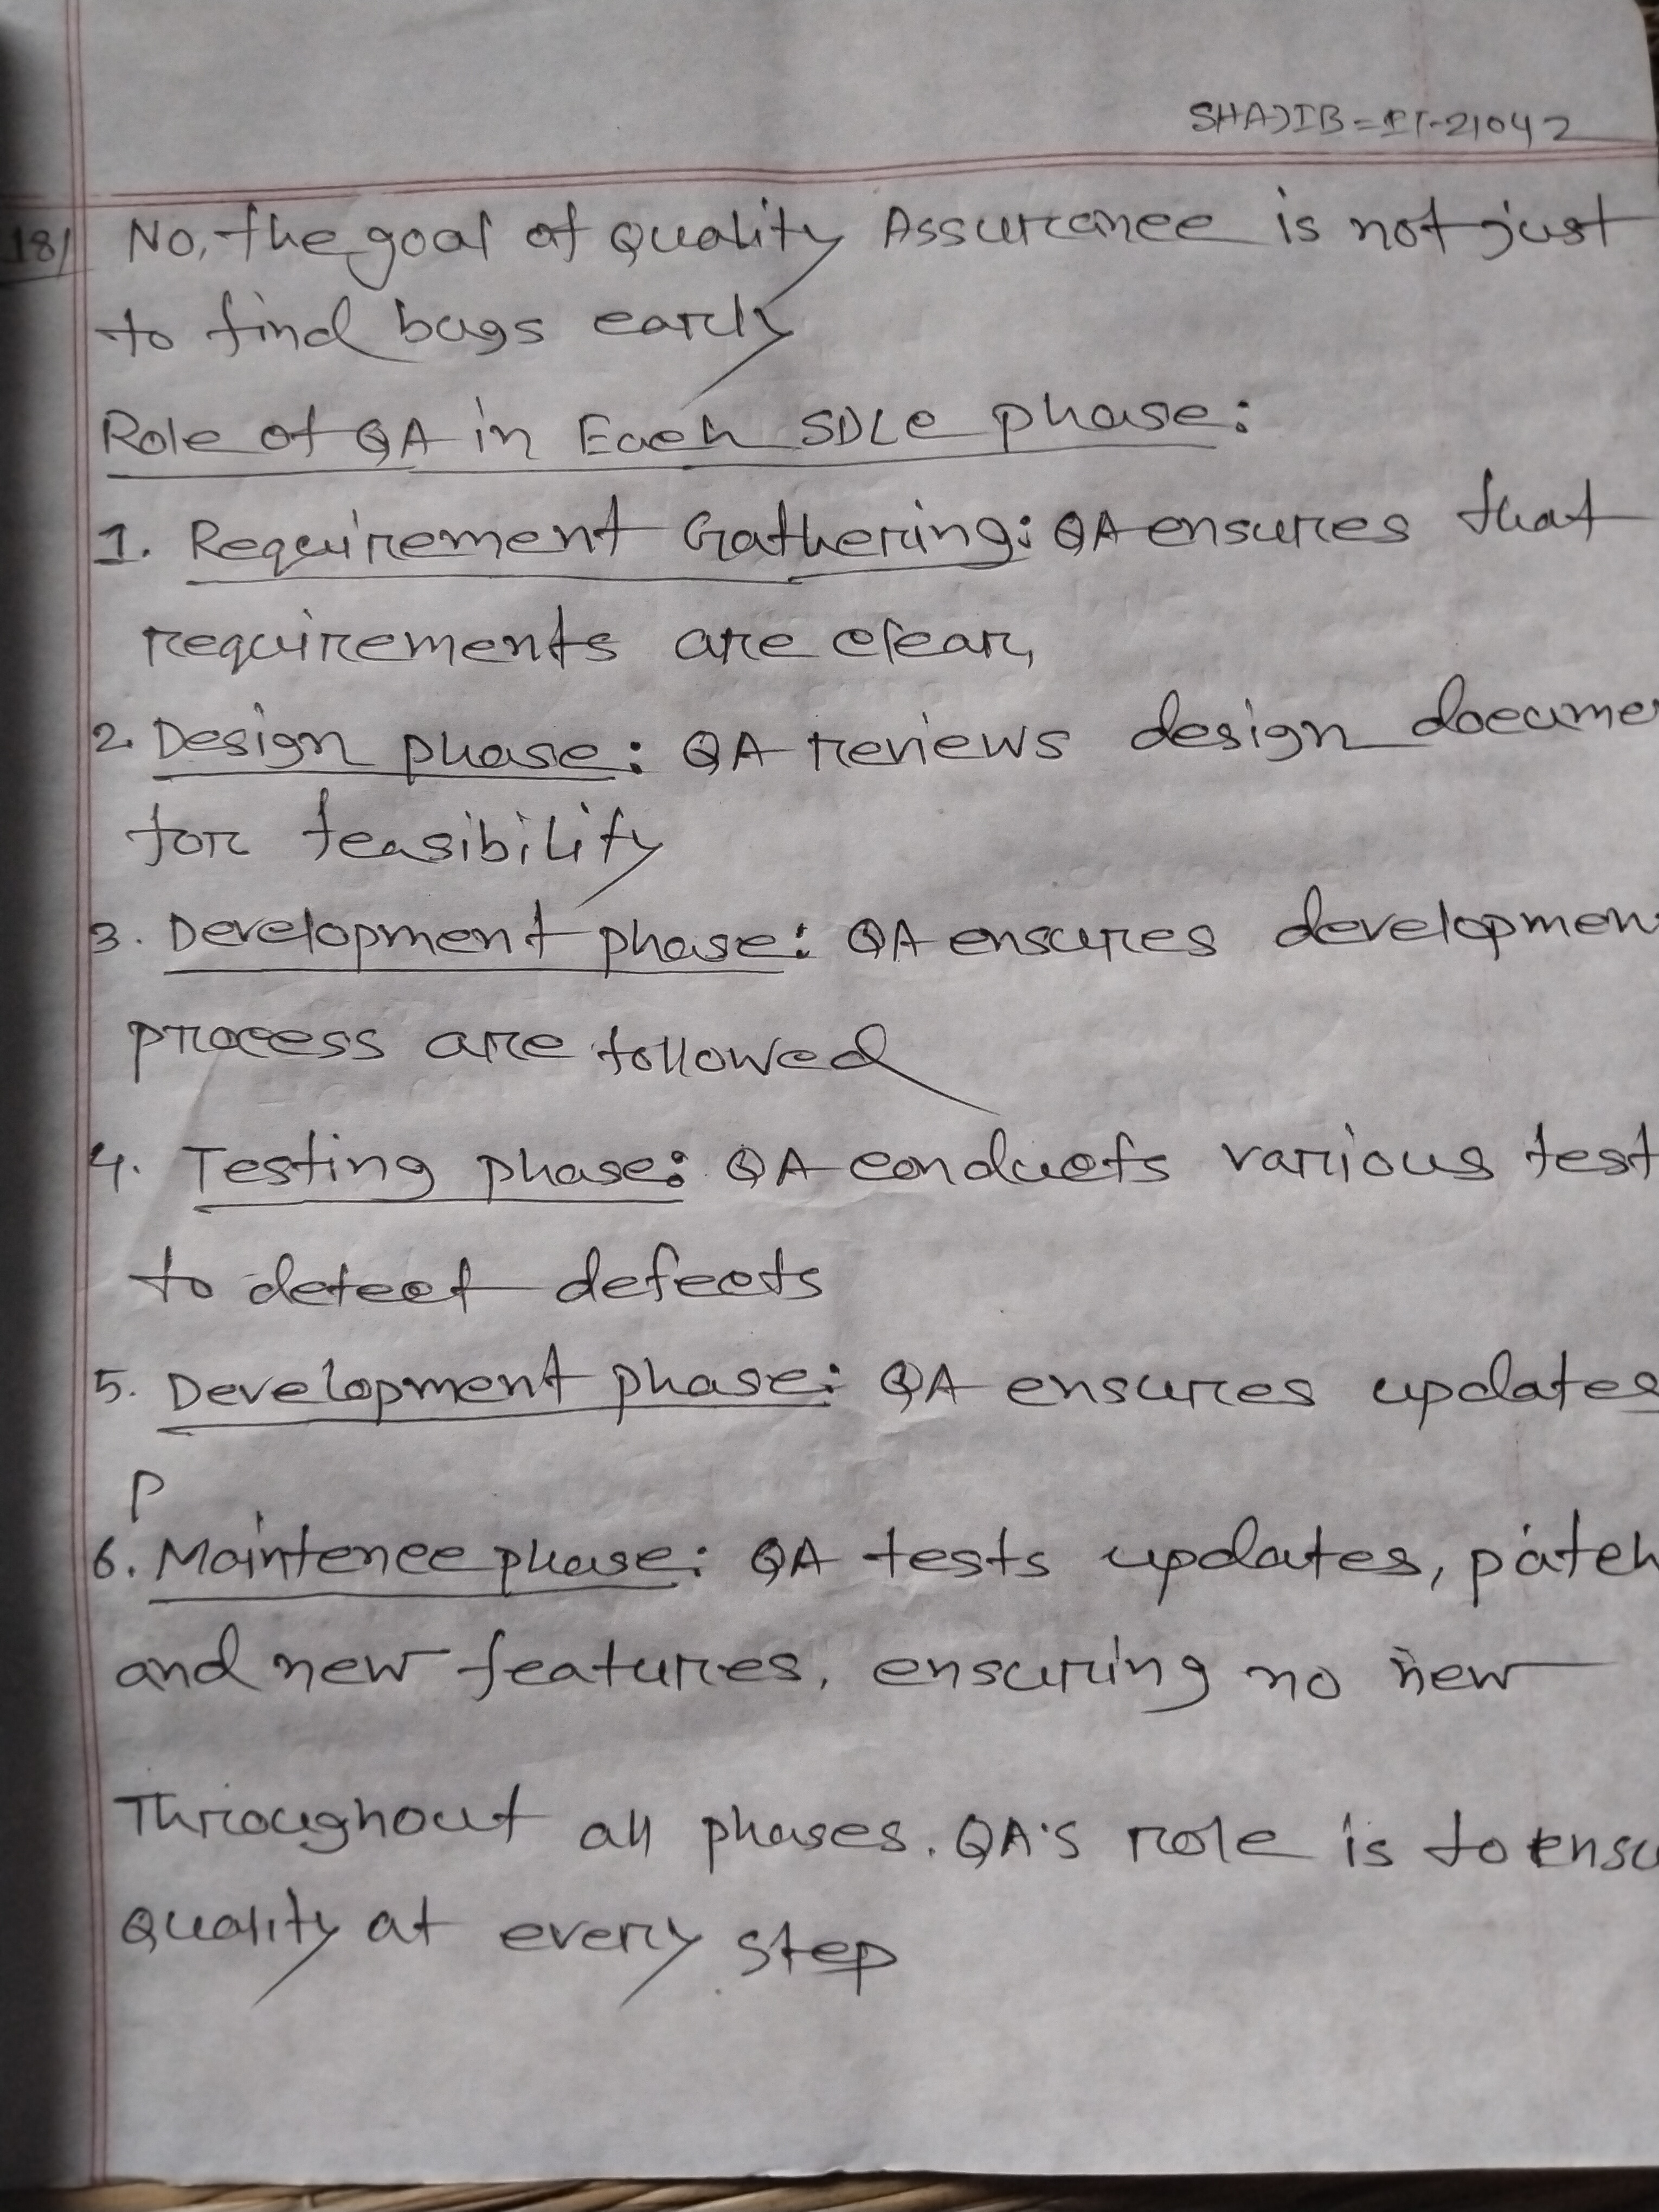 SHAJIB = IT-21042
18) No, the goal of Quality Assurance is not just
to find bugs early
Role of QA in Each SDLC phase:
1. Requirement Gathering: QA ensures that
requirements are clear,
2. Design phase: QA reviews design docume
for feasibility
3. Development phase: QA ensures developmen
process are followed
4. Testing phase: QA conducts various test
to detect defects
5. Development phase: QA ensures updates
P
6. Maintenece phase: QA tests updates, patch
and new features, ensuring no new
Throughout all phases. QA's role is to ensu
Quality at every step